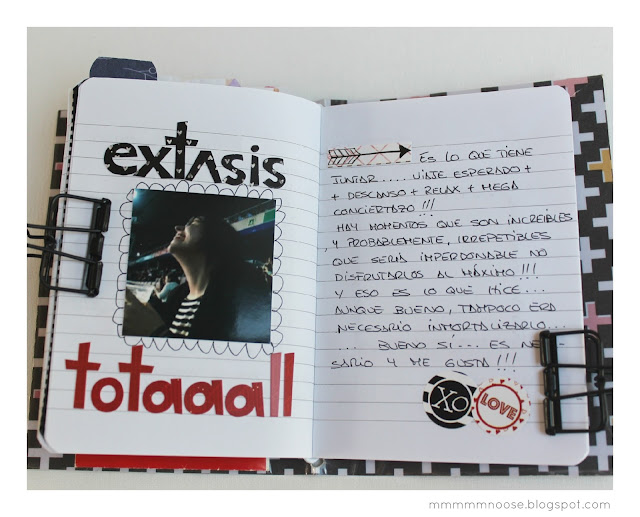 extasis
totaaaall
ES LO QUE TIENE
JUNTAR.... VIAJE ESPERADO +
+ DESCANSO + RELAX + MEGA
CONCIERTAZO !!!
HAY MOMENTOS QUE SON INCREÍBLES
, Y PROBABLEMENTE, IRREPETIBLES
QUE SERÍA IMPERDONABLE NO
DISFRUTARLOS AL MÁXIMO !!!
Y ESO ES LO QUE HICE...
AUNQUE BUENO, TAMPOCO ERA
NECESARIO INMORTALIZARLO...
.... BUENO SÍ.... ES NE
SARIO Y ME GUSTA !!!
XO LOVE
mmmmmnoose.blogspot.com